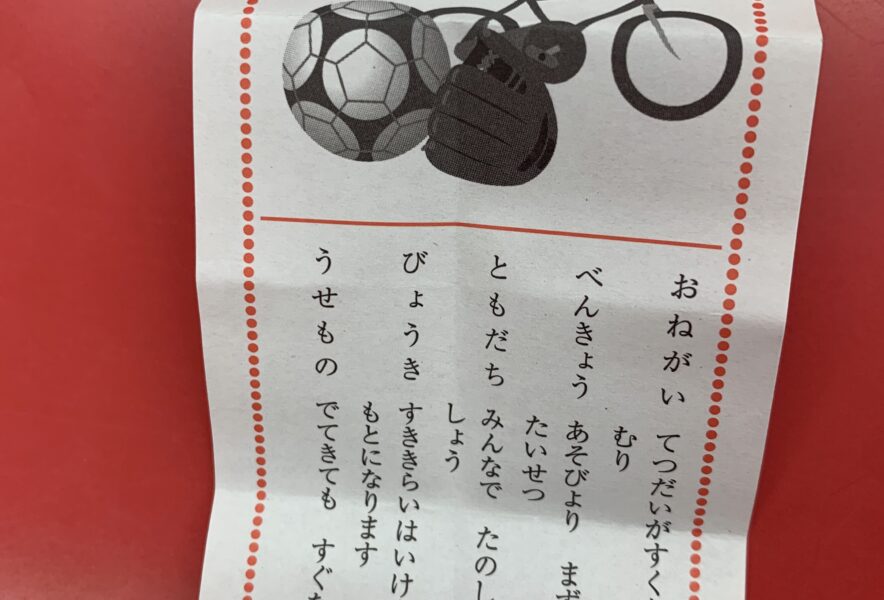 おねがい てつだいがすく
むり
べんきょう あそびより まず
たいせつ
ともだち みんなで たのし
しょう
びょうき すききらいはいけ
もとになります
うせもの でてきても すぐ